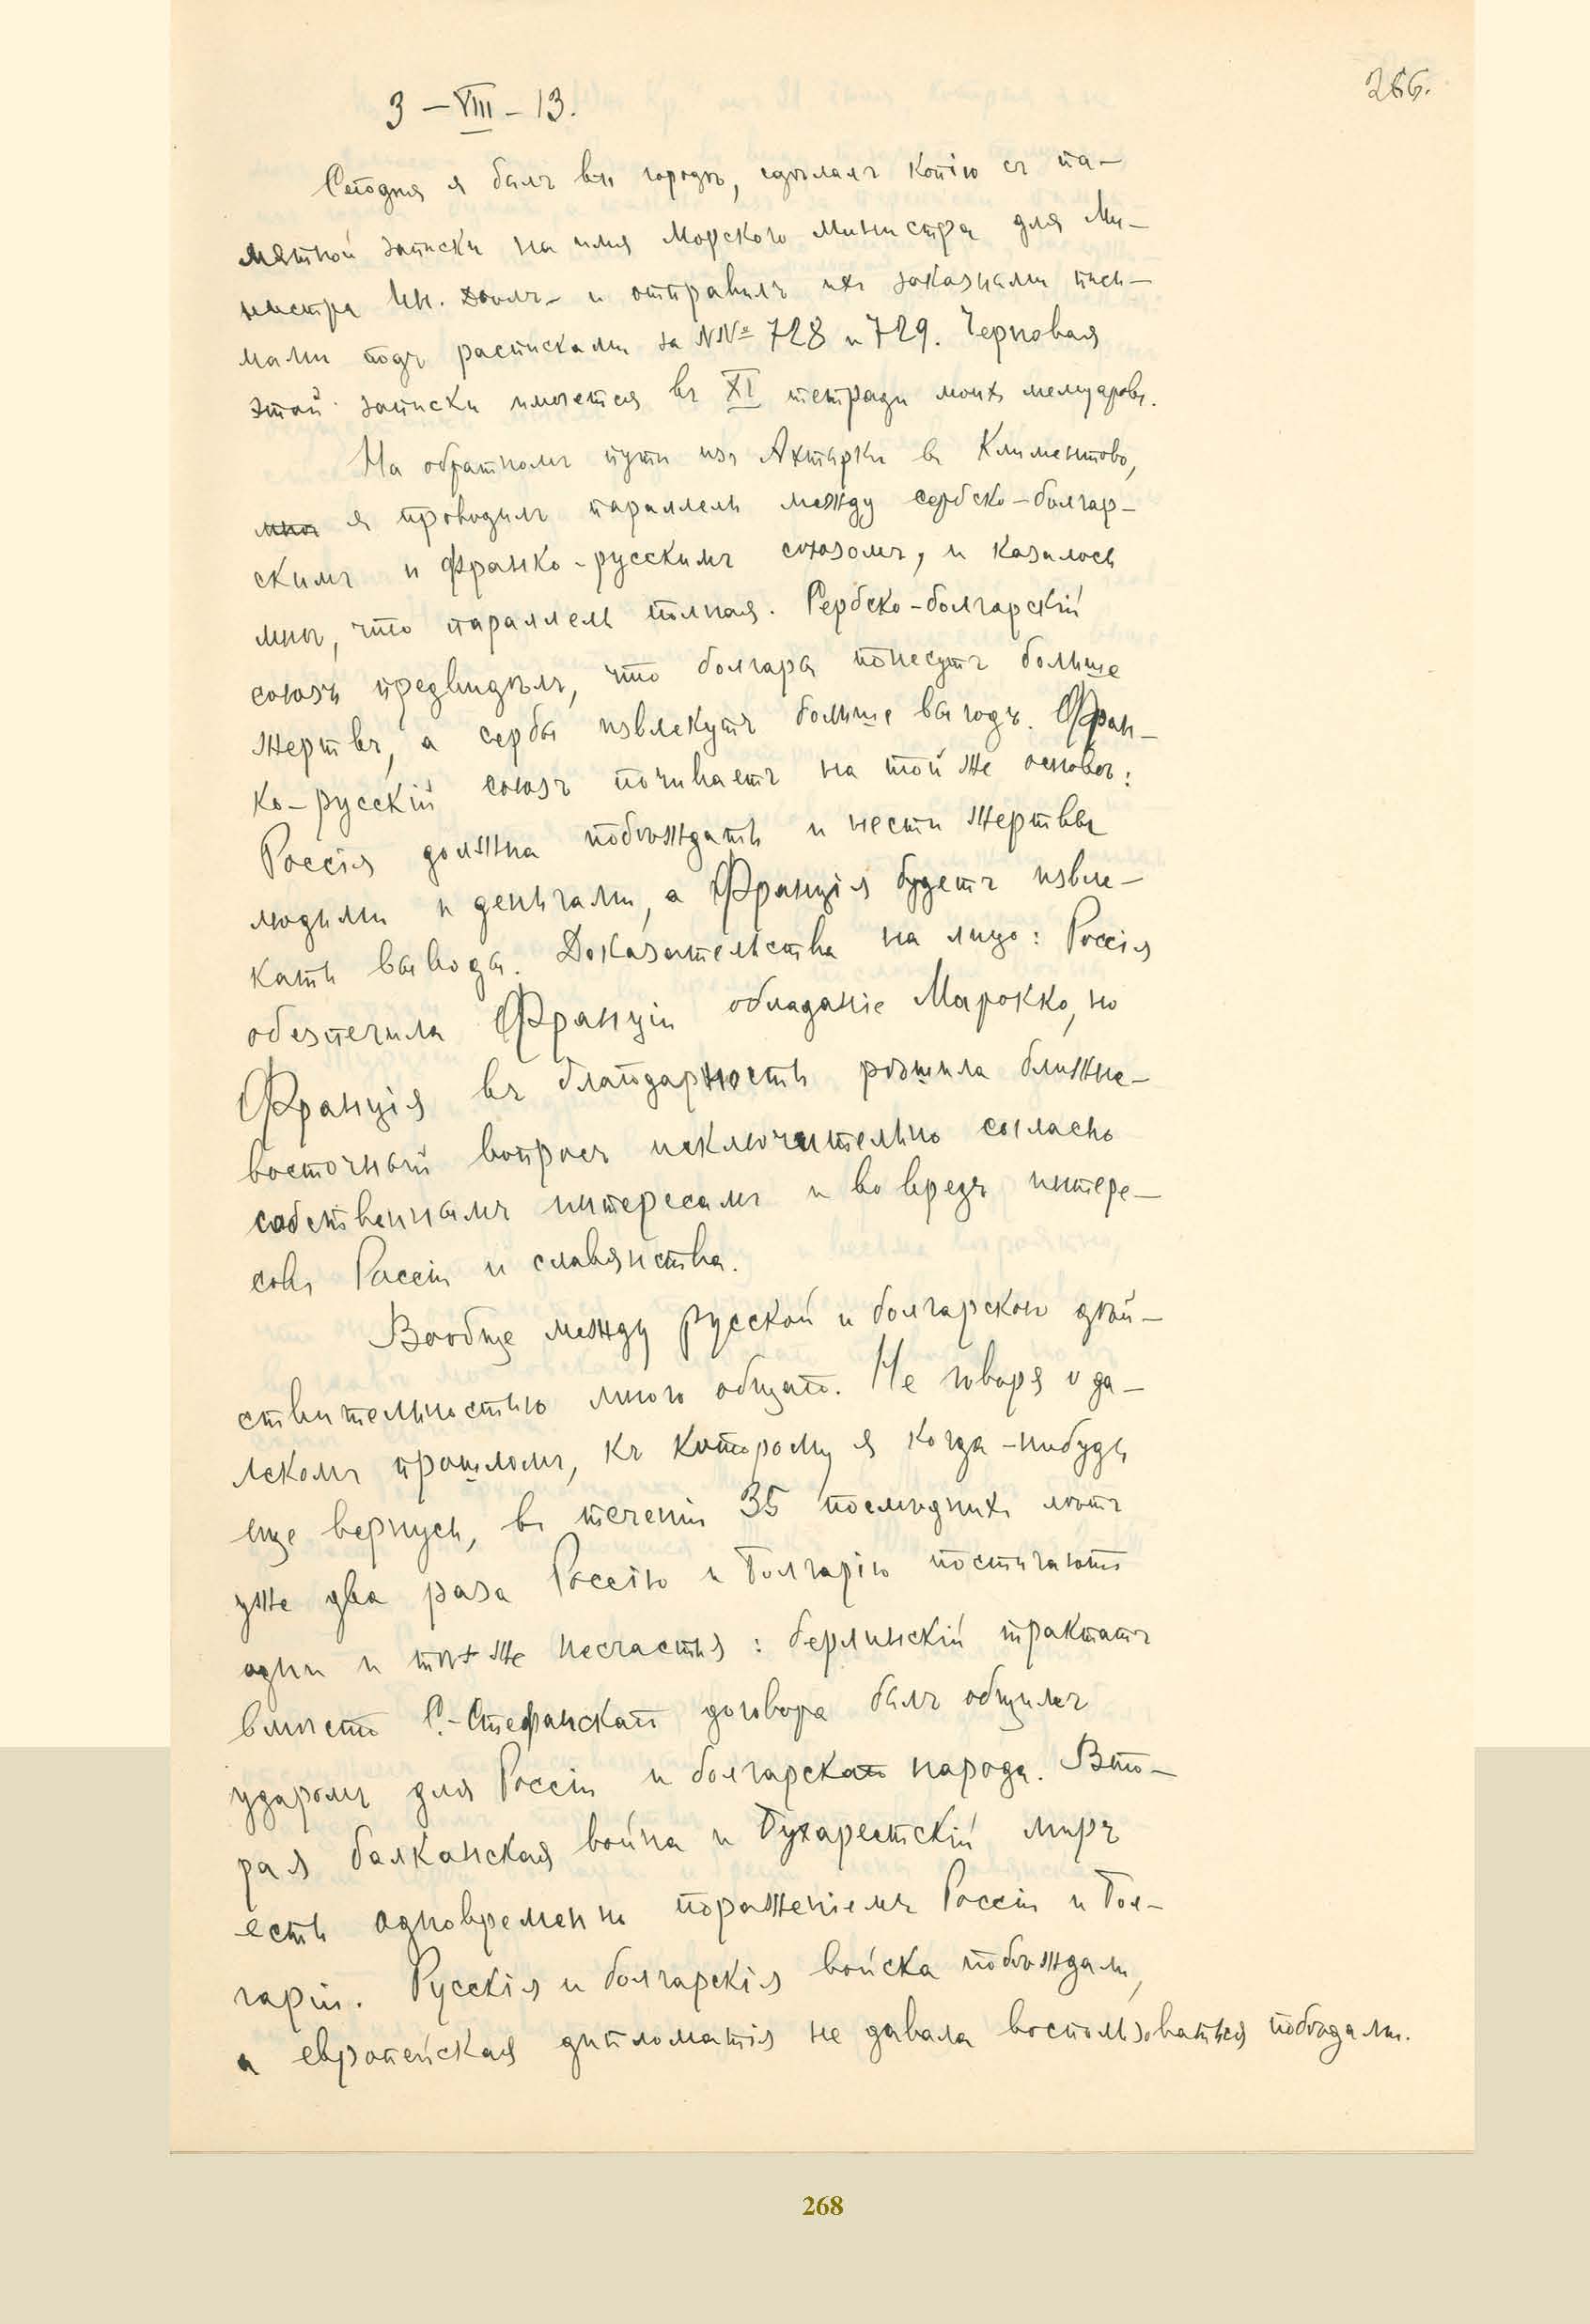 266.
3 – VIII – 13.
Сегодня я былъ въ городѣ, сдѣлалъ копію съ па-
мятной записки на имя Морского Министра для Ми-
нистра Ин. Дѣлъ и отправилъ ихъ заказными пись-
мами подъ расписками за №№ 728 и 729. Черновая
этой записки имѣется въ XI тетради моихъ мемуаровъ.
На обратномъ пути изъ Ахтырки въ Климентово,
я проводилъ параллель между сербско-болгар-
скимъ и франко-русскимъ союзомъ, и казалось
мнѣ, что параллель полная. Сербско-болгарскій
союзъ предвидѣлъ, что болгары понесутъ больше
жертвъ, а сербы извлекутъ больше выгодъ. Фран-
ко-русскій союзъ почиваетъ на той же основѣ:
Россія должна побѣждать и нести жертвы
людьми и деньгами, а Франція будетъ извле-
кать выводы. Доказательства на лицо: Россія
обезпечила Франціи обладаніе Марокко, но
Франція въ благодарность рѣшила ближне-
восточный вопросъ исключительно согласно
собственнымъ интересамъ и во вредъ интере-
совъ Россіи и славянства.
Вообще между русской и болгарской дѣй-
ствительностью много общаго. Не говоря о да-
лекомъ прошломъ, къ которому я когда-нибудь
еще вернусь, въ теченіи 35 послѣднихъ лѣтъ
уже два раза Россію и Болгарію постигаютъ
одни и тѣ же несчастья: берлинскій трактатъ
вмѣсто С.-Стефанскаго договора былъ общимъ
ударомъ для Россіи и болгарскаго народа. Вто-
рая балканская война и Бухарестскій миръ
есть одновременно пораженіемъ Россіи и Бол-
гаріи. Русскія и болгарскія войска побѣждали,
а европейская дипломатія не давала воспользоваться побѣдами.
268